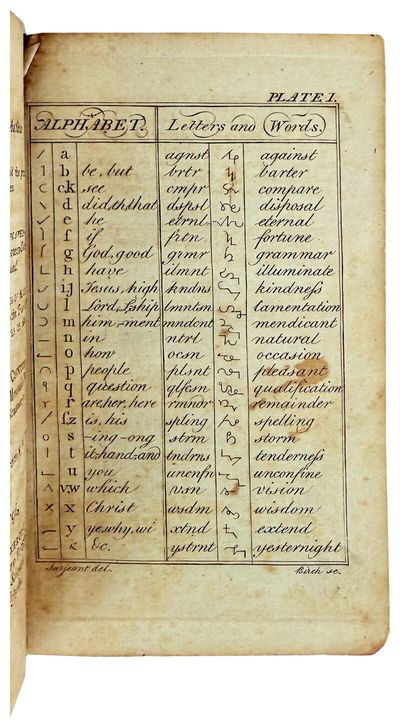 PLATE I.
ALPHABET. Letters and Words.
a agnst against
b be, but brtr barter
ck see cmpr compare
d did, th, that dspsl disposal
e he etrnl eternal
f if frtn fortune
g God, good grmr grammar
h have ilmnt illuminate
ij Jesus, high kndns kindneſs
l Lord, Lship lmntsn lamentation
m him,-ment mndcnt mendicant
n in ntrl natural
o how ocsn occasion
p people plsnt pleasant
q question qlfcsn qualification
r are, her, here rmndr remainder
ſz is, his spling spelling
s -ing-ong strm storm
t it-hand-and tndrns tenderneſs
u you uncnfn unconfine
v,w which vsn vision
x Christ wsdm wisdom
y ye, why, wi xtnd extend
&c. ystrnt yesternight
Sarjeant del. Birch sc.